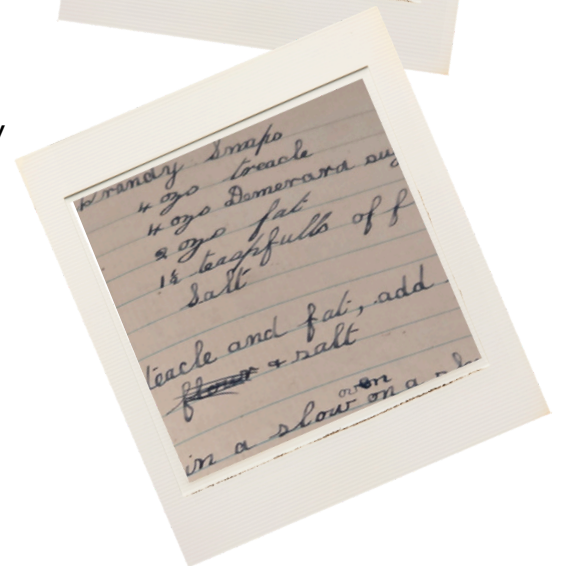 Brandy Snaps
4 ozs treacle
4 ozs Demerara su
2 ozs fat
1½ teaspfulls of f
Salt
teacle and fat, add
flour & salt
oven
in a slow on a